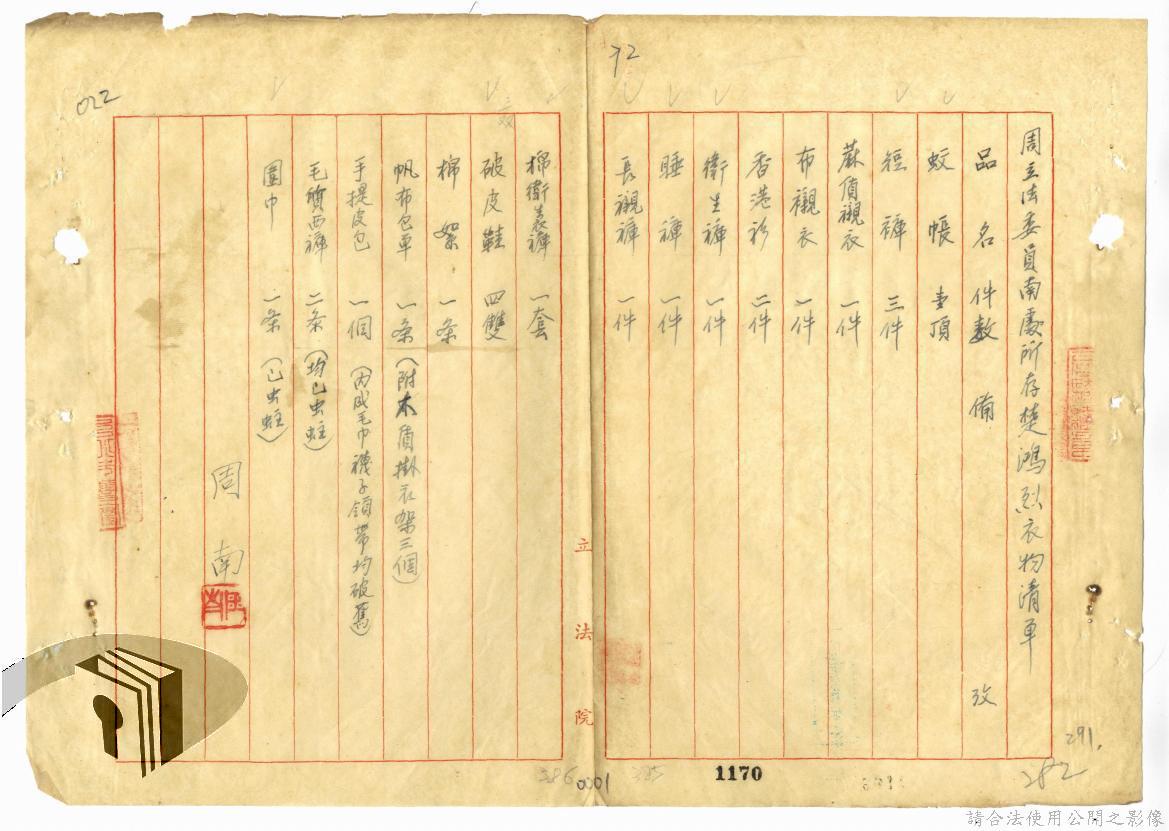 72
周立法委員南處所存楚鴻烈衣物清單
品名 件數 備 攷
蚊帳 壹頂
短褲 三件
蔴質襯衣 一件
布襯衣 一件
香港衫 二件
衛生褲 一件
睡褲 一件
長襯褲 一件
022
棉衛生衣褲 一套
破皮鞋 四雙
棉絮 一条
帆布包單 一条(附木質掛衣架三個)
手提皮包 一個(內成毛巾襪子領帶均破舊)
毛質西褲 二条(均已虫蛀)
圍巾 一条(已虫蛀)
周南
立法院
386
0001
385
1170
291.
282
請合法使用公開之影像